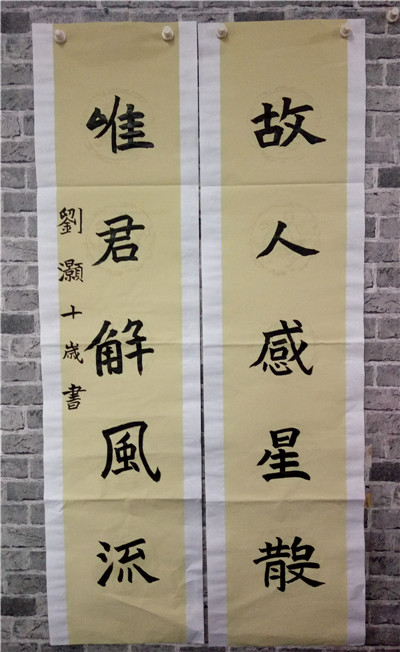 故人感星散
唯君解風流
劉灝十歲書